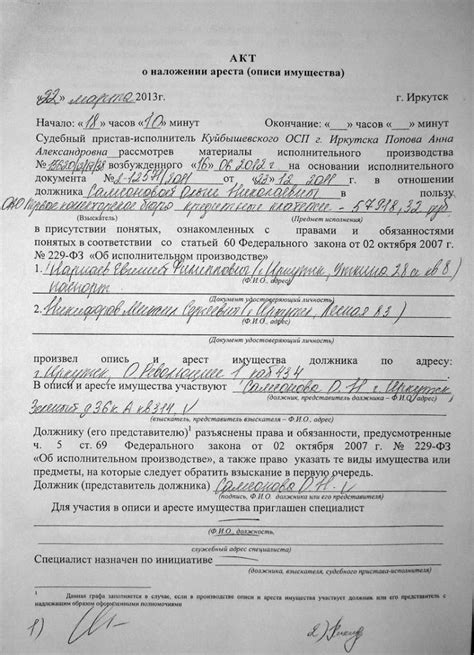 АКТ
о наложении ареста (описи имущества)
«22» марта 2013г. г. Иркутск
Начало: «18» часов «10» минут Окончание: «__» часов «__» минут
Судебный пристав-исполнитель Куйбышевского ОСП г. Иркутска Попова Анна
Александровна рассмотрев материалы исполнительного производства
№ возбужденного «16» 06.2012 г. на основании исполнительного
документа № от «23» 12.2011 г. в отношении
должника Самсоновой Ольги Николаевны в пользу
ОАО Первое коллекторское бюро кредитные платежи – 57918,32 руб
(Взыскатель) (Предмет исполнения)
в присутствии понятых, ознакомленных с правами и обязанностями
понятых в соответствии со статьей 60 Федерального закона от 02 октября 2007 г.
№ 229-ФЗ «Об исполнительном производстве»
1. Евгений Филиппович г. Иркутск, 28 а кв 8
(Ф.И.О., адрес)
паспорт
(Документ удостоверяющий личность)
2. Никифоров Михаил Сергеевич г. Иркутск, Лесная
(Ф.И.О., адрес)
(Документ удостоверяющий личность)
произвел опись и арест имущества должника по адресу:
г. Иркутск, О. Революции 1 каб 434
В описи и аресте имущества участвуют Самсонова О.Н г. Иркутск
(должник, представитель должника – Ф.И.О., адрес)
д 36к А кв 314, V
(взыскатель, представитель взыскателя – Ф.И.О., адрес)
Должнику (его представителю)1 разъяснены права и обязанности, предусмотренные
ч. 5 ст. 69 Федерального закона от 02 октября 2007 г. № 229-ФЗ
«Об исполнительном производстве», а также право указать те виды имущества или
предметы, на которые следует обратить взыскание в первую очередь.
Должник (представитель должника) Самсонова О.Н. V
(подпись, Ф.И.О. должника или его представителя)
Для участия в описи и аресте имущества приглашен специалист
(Ф.И.О., должность,
служебный адрес специалиста)
Специалист назначен по инициативе
(должника, взыскателя, судебного пристава-исполнителя)
1 Данная графа заполняется в случае, если в производстве описи и ареста имущества участвует должник или его представитель с
надлежащим образом оформленными полномочиями
1) 2)